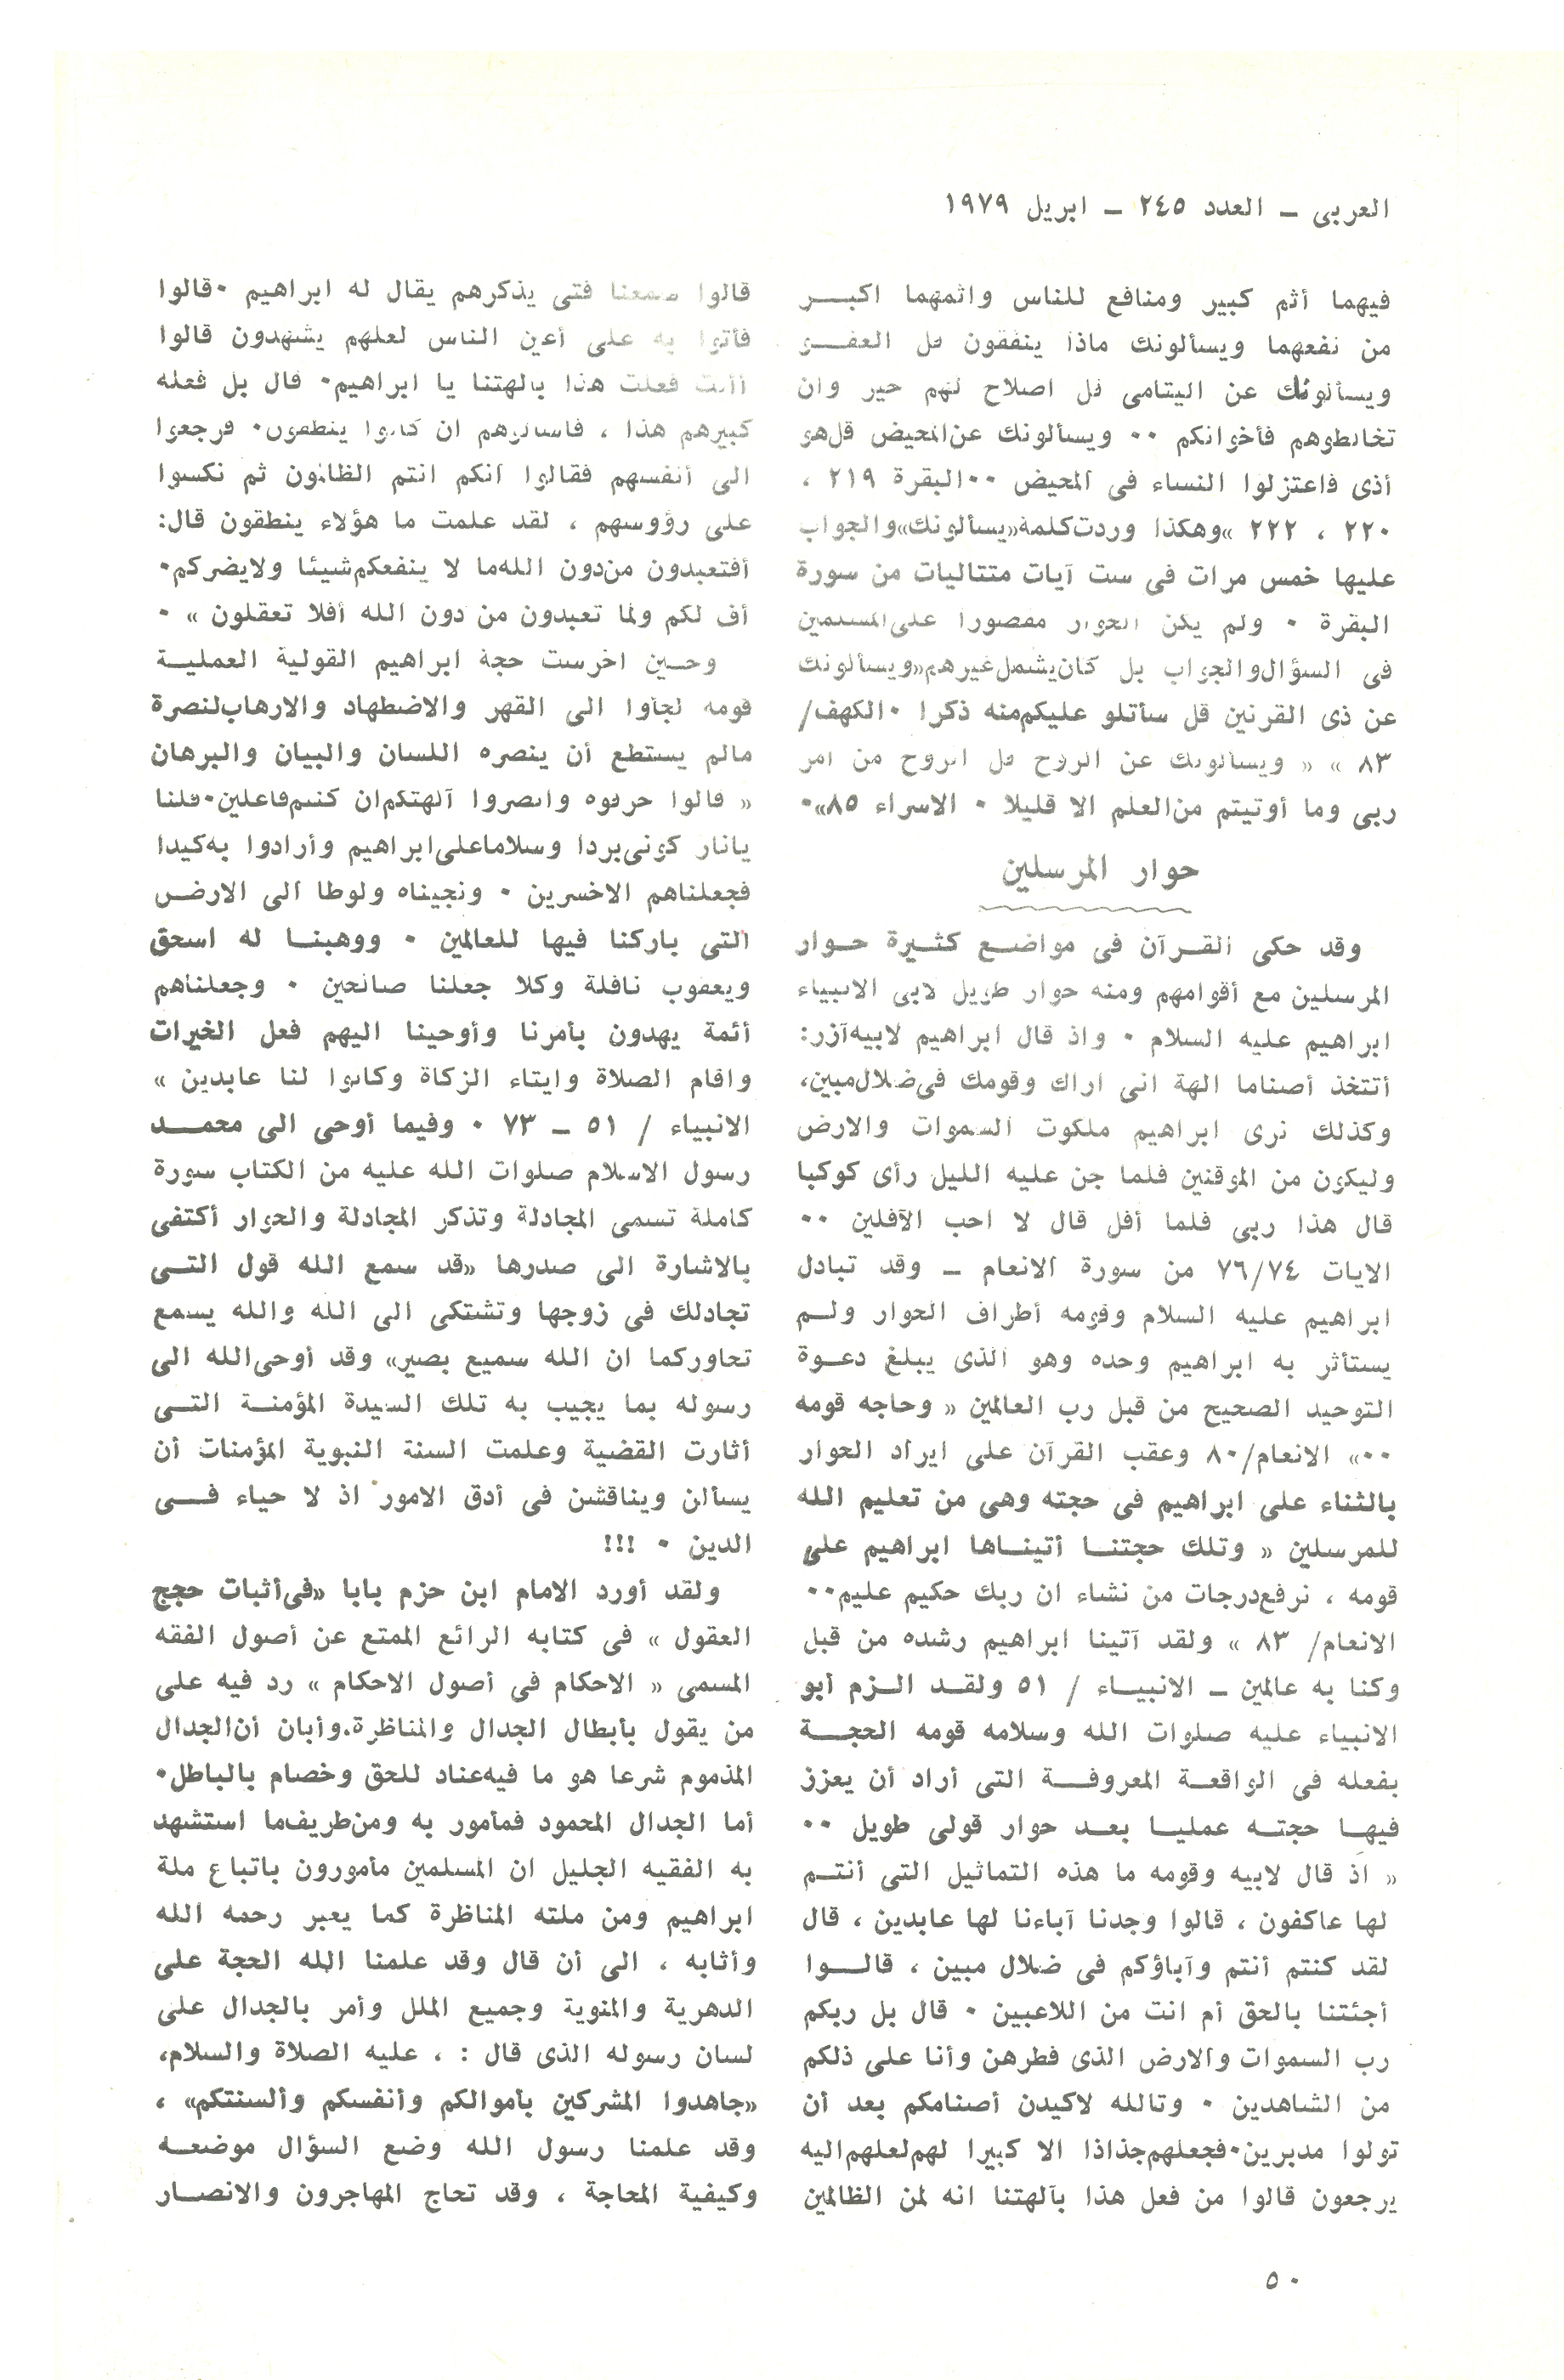 العربى ـ العدد ٢٤٥ ـ ابريل ١٩٧٩
فيهما أثم كبير ومنافع للناس واثمهما اكبـــر
من نفعهما ويسألونك ماذا ينفقون قل العفـــو
ويسألونك عن اليتامى قل اصلاح لهم خير وان
تخالطوهم فأخوانكم ٠٠ ويسألونك عن المحيض قل هو
أذى فاعتزلوا النساء فى المحيض ٠٠ البقرة ٢١٩ ،
٢٢٠ ، ٢٢٢ » وهكذا وردت كلمة «يسألونك» والجواب
عليها خمس مرات فى ست آيات متتاليات من سورة
البقرة ٠ ولم يكن الحوار مقصورا على المسلمين
فى السؤال والجواب بل كان يشمل غيرهم «ويسألونك
عن ذى القرنين قل سأتلو عليكم منه ذكرا ٠ الكهف/
٨٣ » « ويسألونك عن الروح قل الروح من امر
ربى وما أوتيتم من العلم الا قليلا ٠ الاسراء ٨٥»٠
حوار المرسلين
وقد حكى القـرآن فى مواضـع كثـيرة حـوار
المرسلين مع أقوامهم ومنه حوار طويل لابى الانبياء
ابراهيم عليه السلام ٠ واذ قال ابراهيم لابيه آزر:
أتتخذ أصناما الهة انى اراك وقومك فى ضلال مبين،
وكذلك نرى ابراهيم ملكوت السموات والارض
وليكون من الموقنين فلما جن عليه الليل رأى كوكبا
قال هذا ربى فلما أفل قال لا احب الآفلين ٠٠
الايات ٧٦/٧٤ من سورة الانعام ـ وقد تبادل
ابراهيم عليه السلام وقومه أطراف الحوار ولـم
يستأثر به ابراهيم وحده وهو الذى يبلغ دعـوة
التوحيد الصحيح من قبل رب العالمين « وحاجه قومه
٠٠» الانعام/٨٠ وعقب القرآن على ايراد الحوار
بالثناء على ابراهيم فى حجته وهى من تعليم الله
للمرسلين « وتلك حجتنـا أتينـاها ابراهيم على
قومه ، نرفع درجات من نشاء ان ربك حكيم عليم٠٠
الانعام/ ٨٣ » ولقد آتينا ابراهيم رشده من قبل
وكنا به عالمين ـ الانبيـاء / ٥١ ولقـد الـزم أبو
الانبياء عليه صلوات الله وسلامه قومه الحجـــة
بفعله فى الواقعـة المعروفـــة التى أراد أن يعزز
فيها حجتـه عمليـا بعـد حوار قولى طويل ٠٠
« اذ قال لابيه وقومه ما هذه التماثيل التى أنتـم
لها عاكفون ، قالوا وجدنا آباءنا لها عابدين ، قال
لقد كنتم أنتم وآباؤكم فى ضلال مبين ، قالـــوا
أجئتنا بالحق أم انت من اللاعبين ٠ قال بل ربكم
رب السموات والارض الذى فطرهن وأنا على ذلكم
من الشاهدين ٠ وتالله لاكيدن أصنامكم بعد أن
تولوا مدبرين٠ فجعلهم جذاذا الا كبيرا لهم لعلهم اليه
يرجعون قالوا من فعل هذا بآلهتنا انه لمن الظالمين
قالوا سمعنا فتى يذكرهم يقال له ابراهيم ٠ قالوا
فأتوا به على أعين الناس لعلهم يشهدون قالوا
أأنت فعلت هذا بالهتنا يا ابراهيم٠ قال بل فعله
كبيرهم هذا ، فاسألوهم ان كانوا ينطقون٠ فرجعوا
الى أنفسهم فقالوا انكم انتم الظالمون ثم نكسوا
على رؤوسهم ، لقد علمت ما هؤلاء ينطقون قال:
أفتعبدون من دون الله ما لا ينفعكم شيئا ولا يضركم٠
أف لكم ولما تعبدون من دون الله أفلا تعقلون » ٠
وحـين اخرست حجة ابراهيم القولية العمليـة
قومه لجأوا الى القهر والاضطهاد والارهاب لنصرة
مالم يستطع أن ينصره اللسان والبيان والبرهان
« قالوا حرقوه وانصروا آلهتكم ان كنتم فاعلين٠ قلنا
يانار كونى بردا وسلاما على ابراهيم وأرادوا به كيدا
فجعلناهم الاخسرين ٠ ونجيناه ولوطا الى الارض
التى باركنا فيها للعالمين ٠ ووهبنـا له اسحق
ويعقوب نافلة وكلا جعلنا صالحين ٠ وجعلناهم
أئمة يهدون بأمرنا وأوحينا اليهم فعل الخيرات
واقام الصلاة وايتاء الزكاة وكانوا لنا عابدين »
الانبياء / ٥١ ـ ٧٣ ٠ وفيما أوحى الى محمـــد
رسول الاسلام صلوات الله عليه من الكتاب سورة
كاملة تسمى المجادلة وتذكر المجادلة والحوار أكتفى
بالاشارة الى صدرها «قد سمع الله قول التـى
تجادلك فى زوجها وتشتكى الى الله والله يسمع
تحاوركما ان الله سميع بصير» وقد أوحى الله الى
رسوله بما يجيب به تلك السيدة المؤمنـة التـى
أثارت القضية وعلمت السنة النبوية المؤمنات أن
يسألن ويناقشن فى أدق الامور اذ لا حياء فـــى
الدين ٠ !!!
ولقد أورد الامام ابن حزم بابا «فى أثبات حجج
العقول » فى كتابه الرائع الممتع عن أصول الفقه
المسمى « الاحكام فى أصول الاحكام » رد فيه على
من يقول بأبطال الجدال والمناظرة٠ وأبان أن الجدال
المذموم شرعا هو ما فيه عناد للحق وخصام بالباطل٠
أما الجدال المحمود فمأمور به ومن طريف ما استشهد
به الفقيه الجليل ان المسلمين مأمورون باتباع ملة
ابراهيم ومن ملته المناظرة كما يعبر رحمه الله
وأثابه ، الى أن قال وقد علمنا الله الحجة على
الدهرية والمنوية وجميع الملل وأمر بالجدال على
لسان رسوله الذى قال : ، عليه الصلاة والسلام،
«جاهدوا المشركين بأموالكم وأنفسكم وألسنتكم» ،
وقد علمنا رسول الله وضع السؤال موضعـه
وكيفية المحاجة ، وقد تحاج المهاجرون والانصـار
٥٠